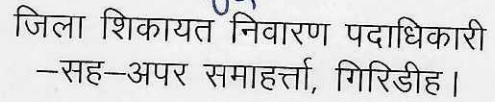 जिला शिकायत निवारण पदाधिकारी
–सह–अपर समाहर्त्ता, गिरिडीह।